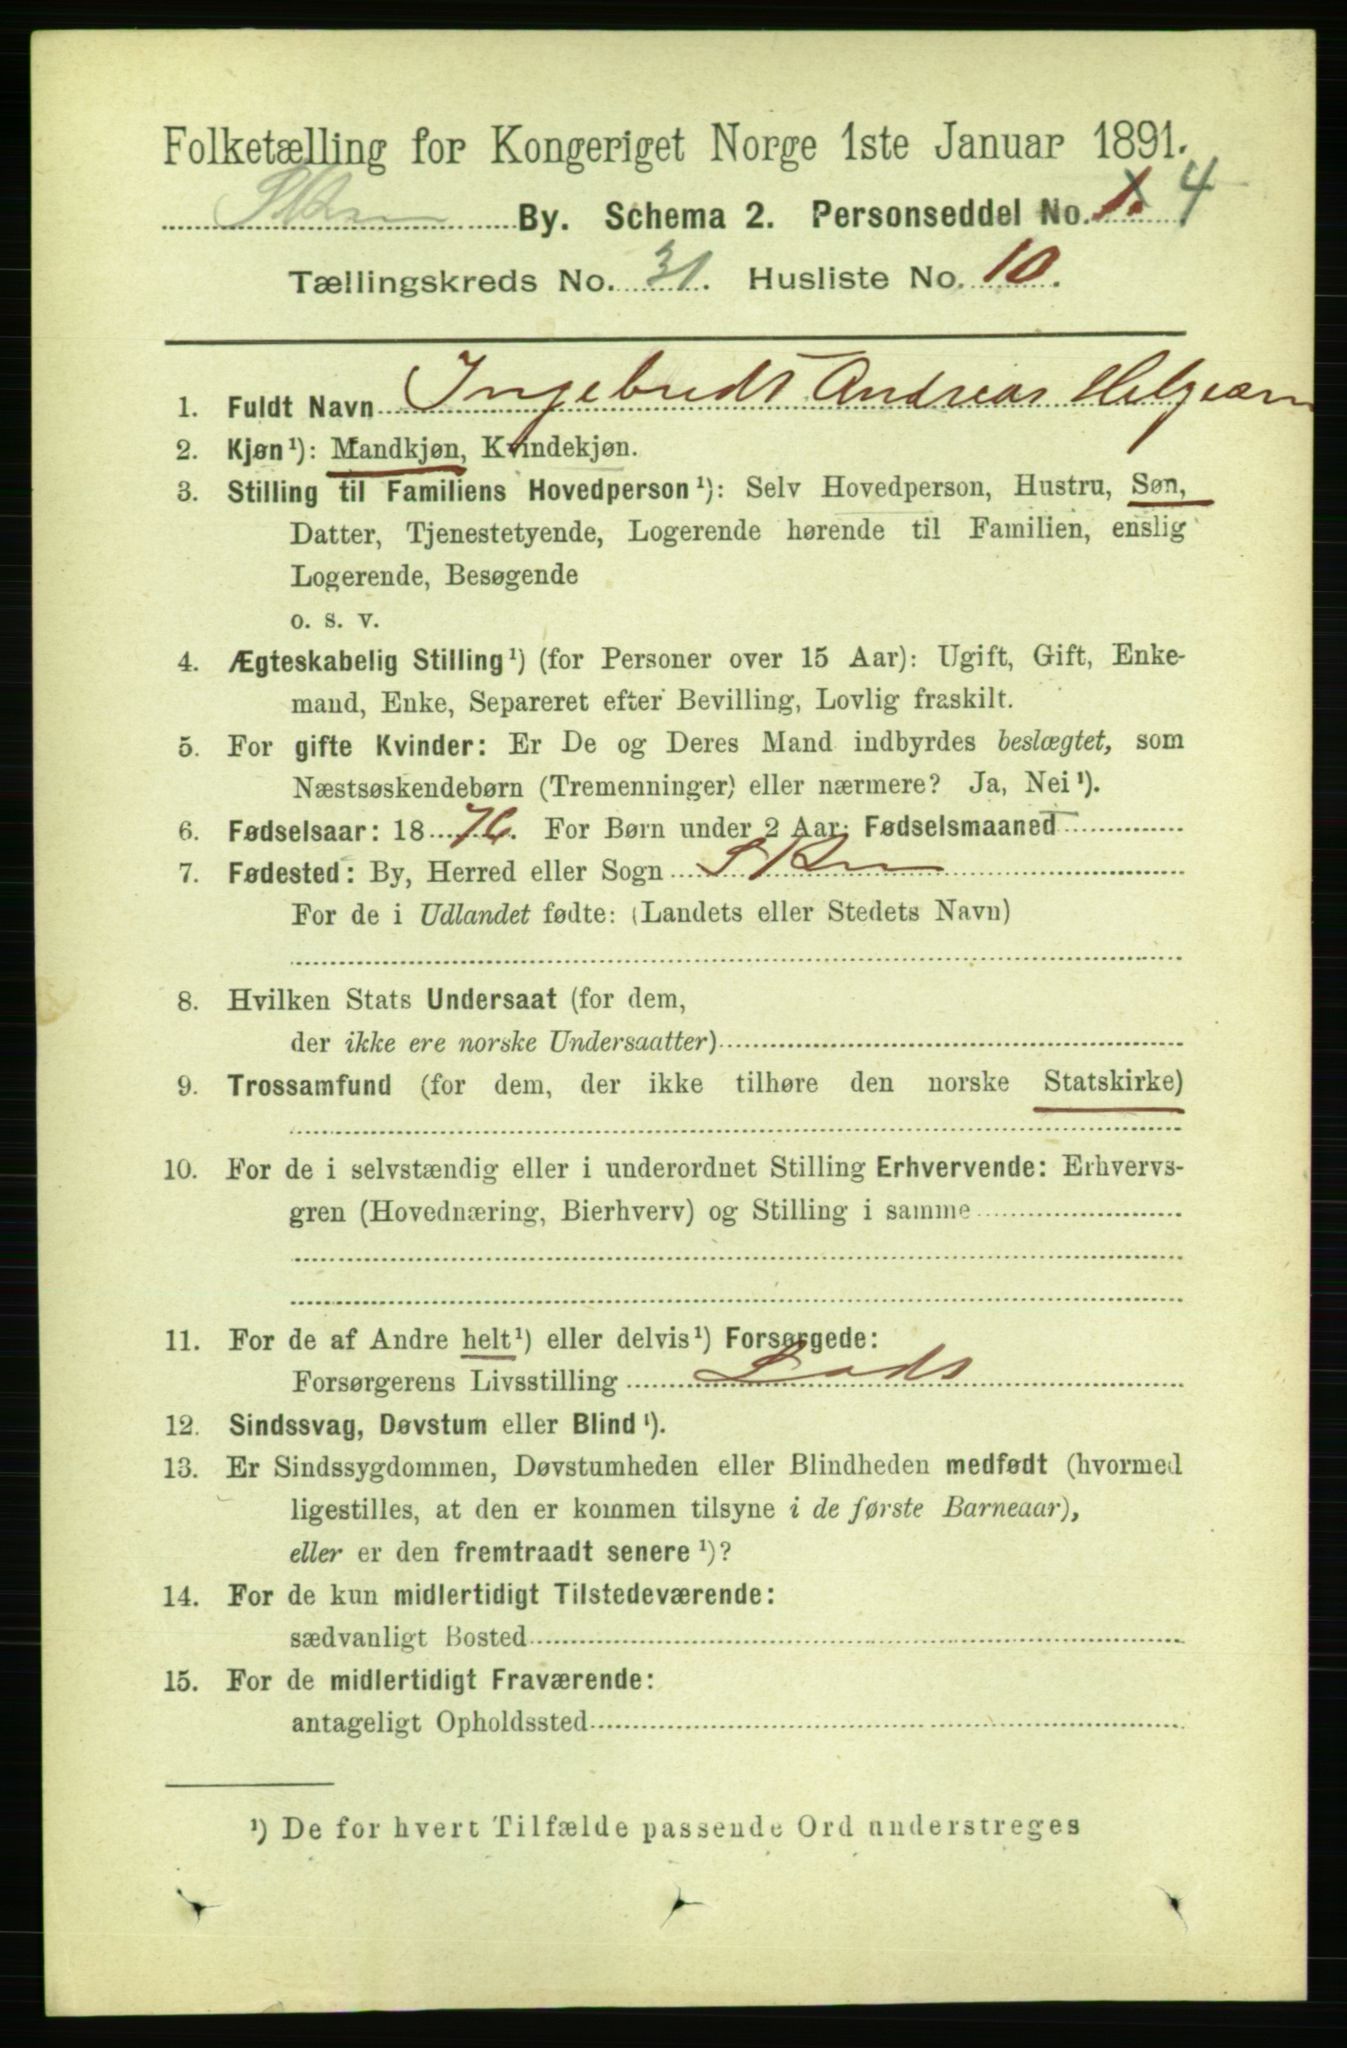 Folketælling for Kongeriget Norge 1ste Januar 1891.
Skien By. Schema 2. Personseddel No. 1. 4
Tællingskreds No. 31. Husliste No. 10.
1. Fuldt Navn Ingebredt Andreas
2. Kjøn¹): Mandkjøn, Kvindekjøn.
3. Stilling til Familiens Hovedperson¹): Selv Hovedperson, Hustru, Søn,
Datter, Tjenestetyende, Logerende hørende til Familien, enslig
Logerende, Besøgende
o. s. v.
4. Ægteskabelig Stilling¹) (for Personer over 15 Aar): Ugift, Gift, Enke-
mand, Enke, Separeret efter Bevilling, Lovlig fraskilt.
5. For gifte Kvinder: Er De og Deres Mand indbyrdes beslægtet, som
Næstsøskendebørn (Tremenninger) eller nærmere? Ja, Nei¹).
6. Fødselsaar: 1876. For Børn under 2 Aar: Fødselsmaaned
7. Fødested: By, Herred eller Sogn Skien
For de i Udlandet fødte: (Landets eller Stedets Navn)
8. Hvilken Stats Undersaat (for dem,
der ikke ere norske Undersaatter)
9. Trossamfund (for dem, der ikke tilhøre den norske Statskirke)
10. For de i selvstændig eller i underordnet Stilling Erhvervende: Erhvervs-
gren (Hovednæring, Bierhverv) og Stilling i samme
11. For de af Andre helt¹) eller delvis¹) Forsørgede:
Forsørgerens Livsstilling Lods
12. Sindssvag, Døvstum eller Blind¹).
13. Er Sindssygdommen, Døvstumheden eller Blindheden medfødt (hvormed
ligestilles, at den er kommen tilsyne i de første Barneaar),
eller er den fremtraadt senere¹)?
14. For de kun midlertidigt Tilstedeværende:
sædvanligt Bosted
15. For de midlertidigt Fraværende:
antageligt Opholdssted
¹) De for hvert Tilfælde passende Ord understreges